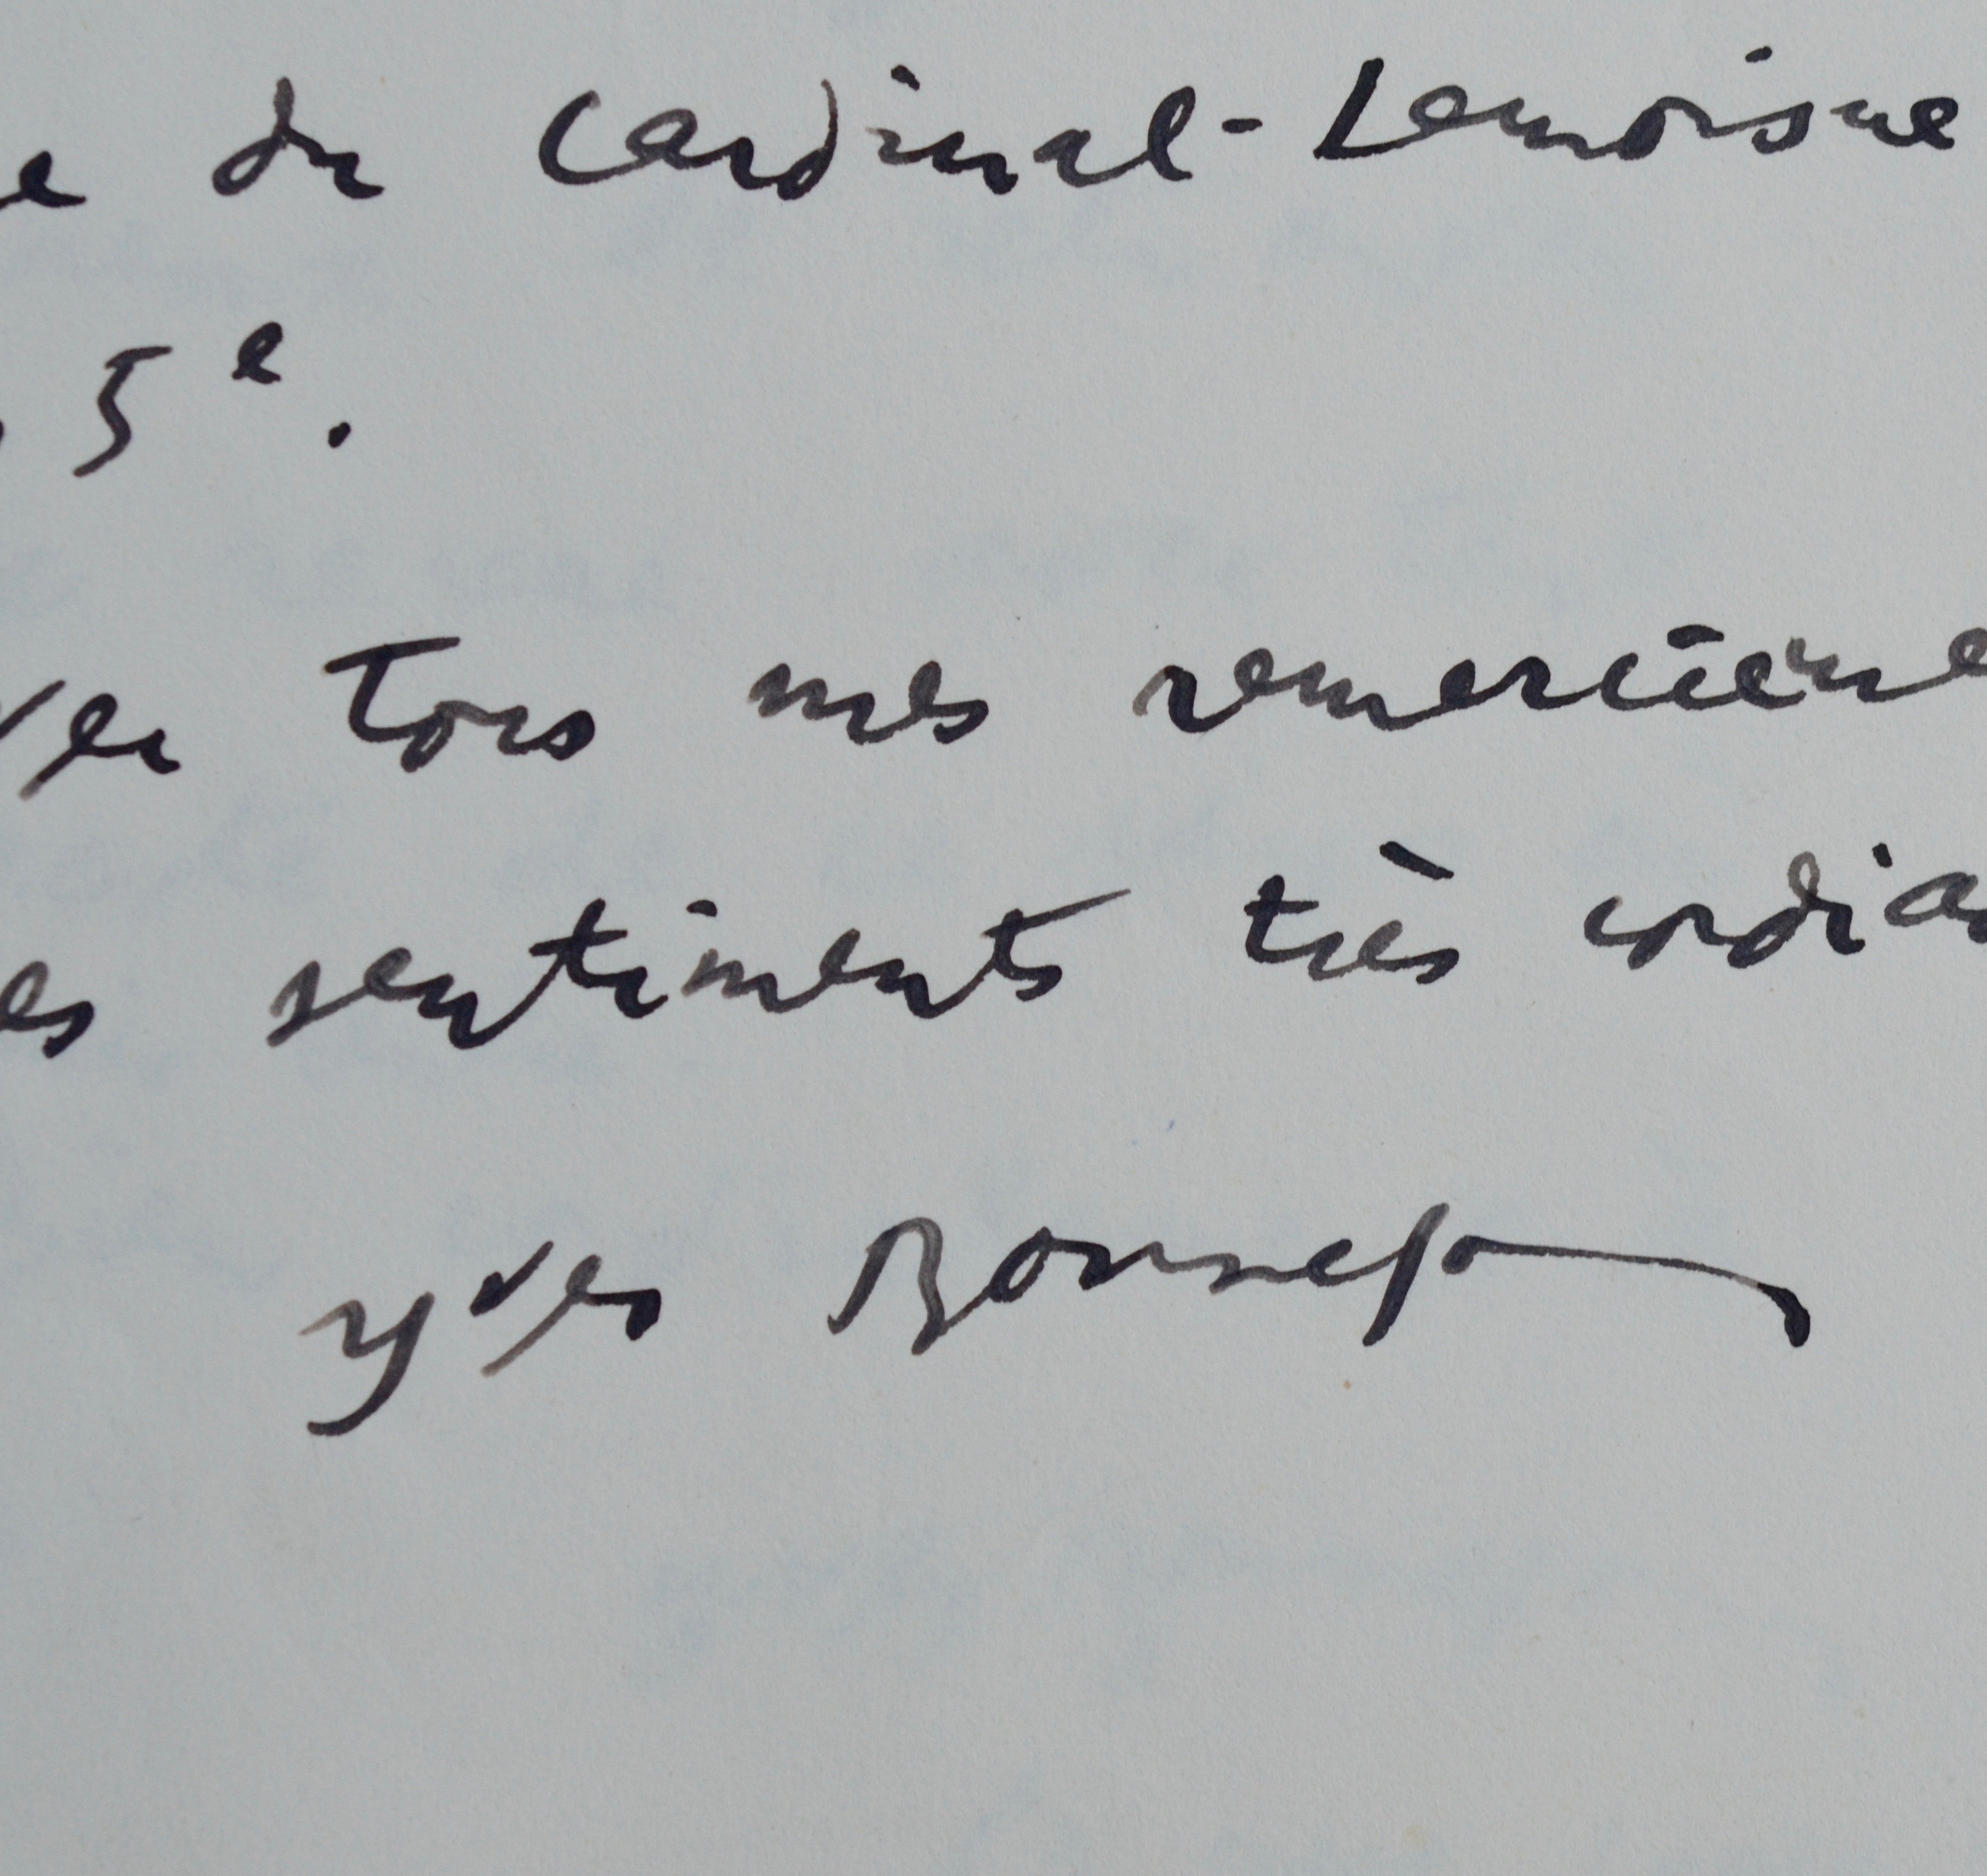 e du Cardinal-Lemoisne
5e.
ver tous mes remercieme
es sentiments très cordia
Yves Bonnefo